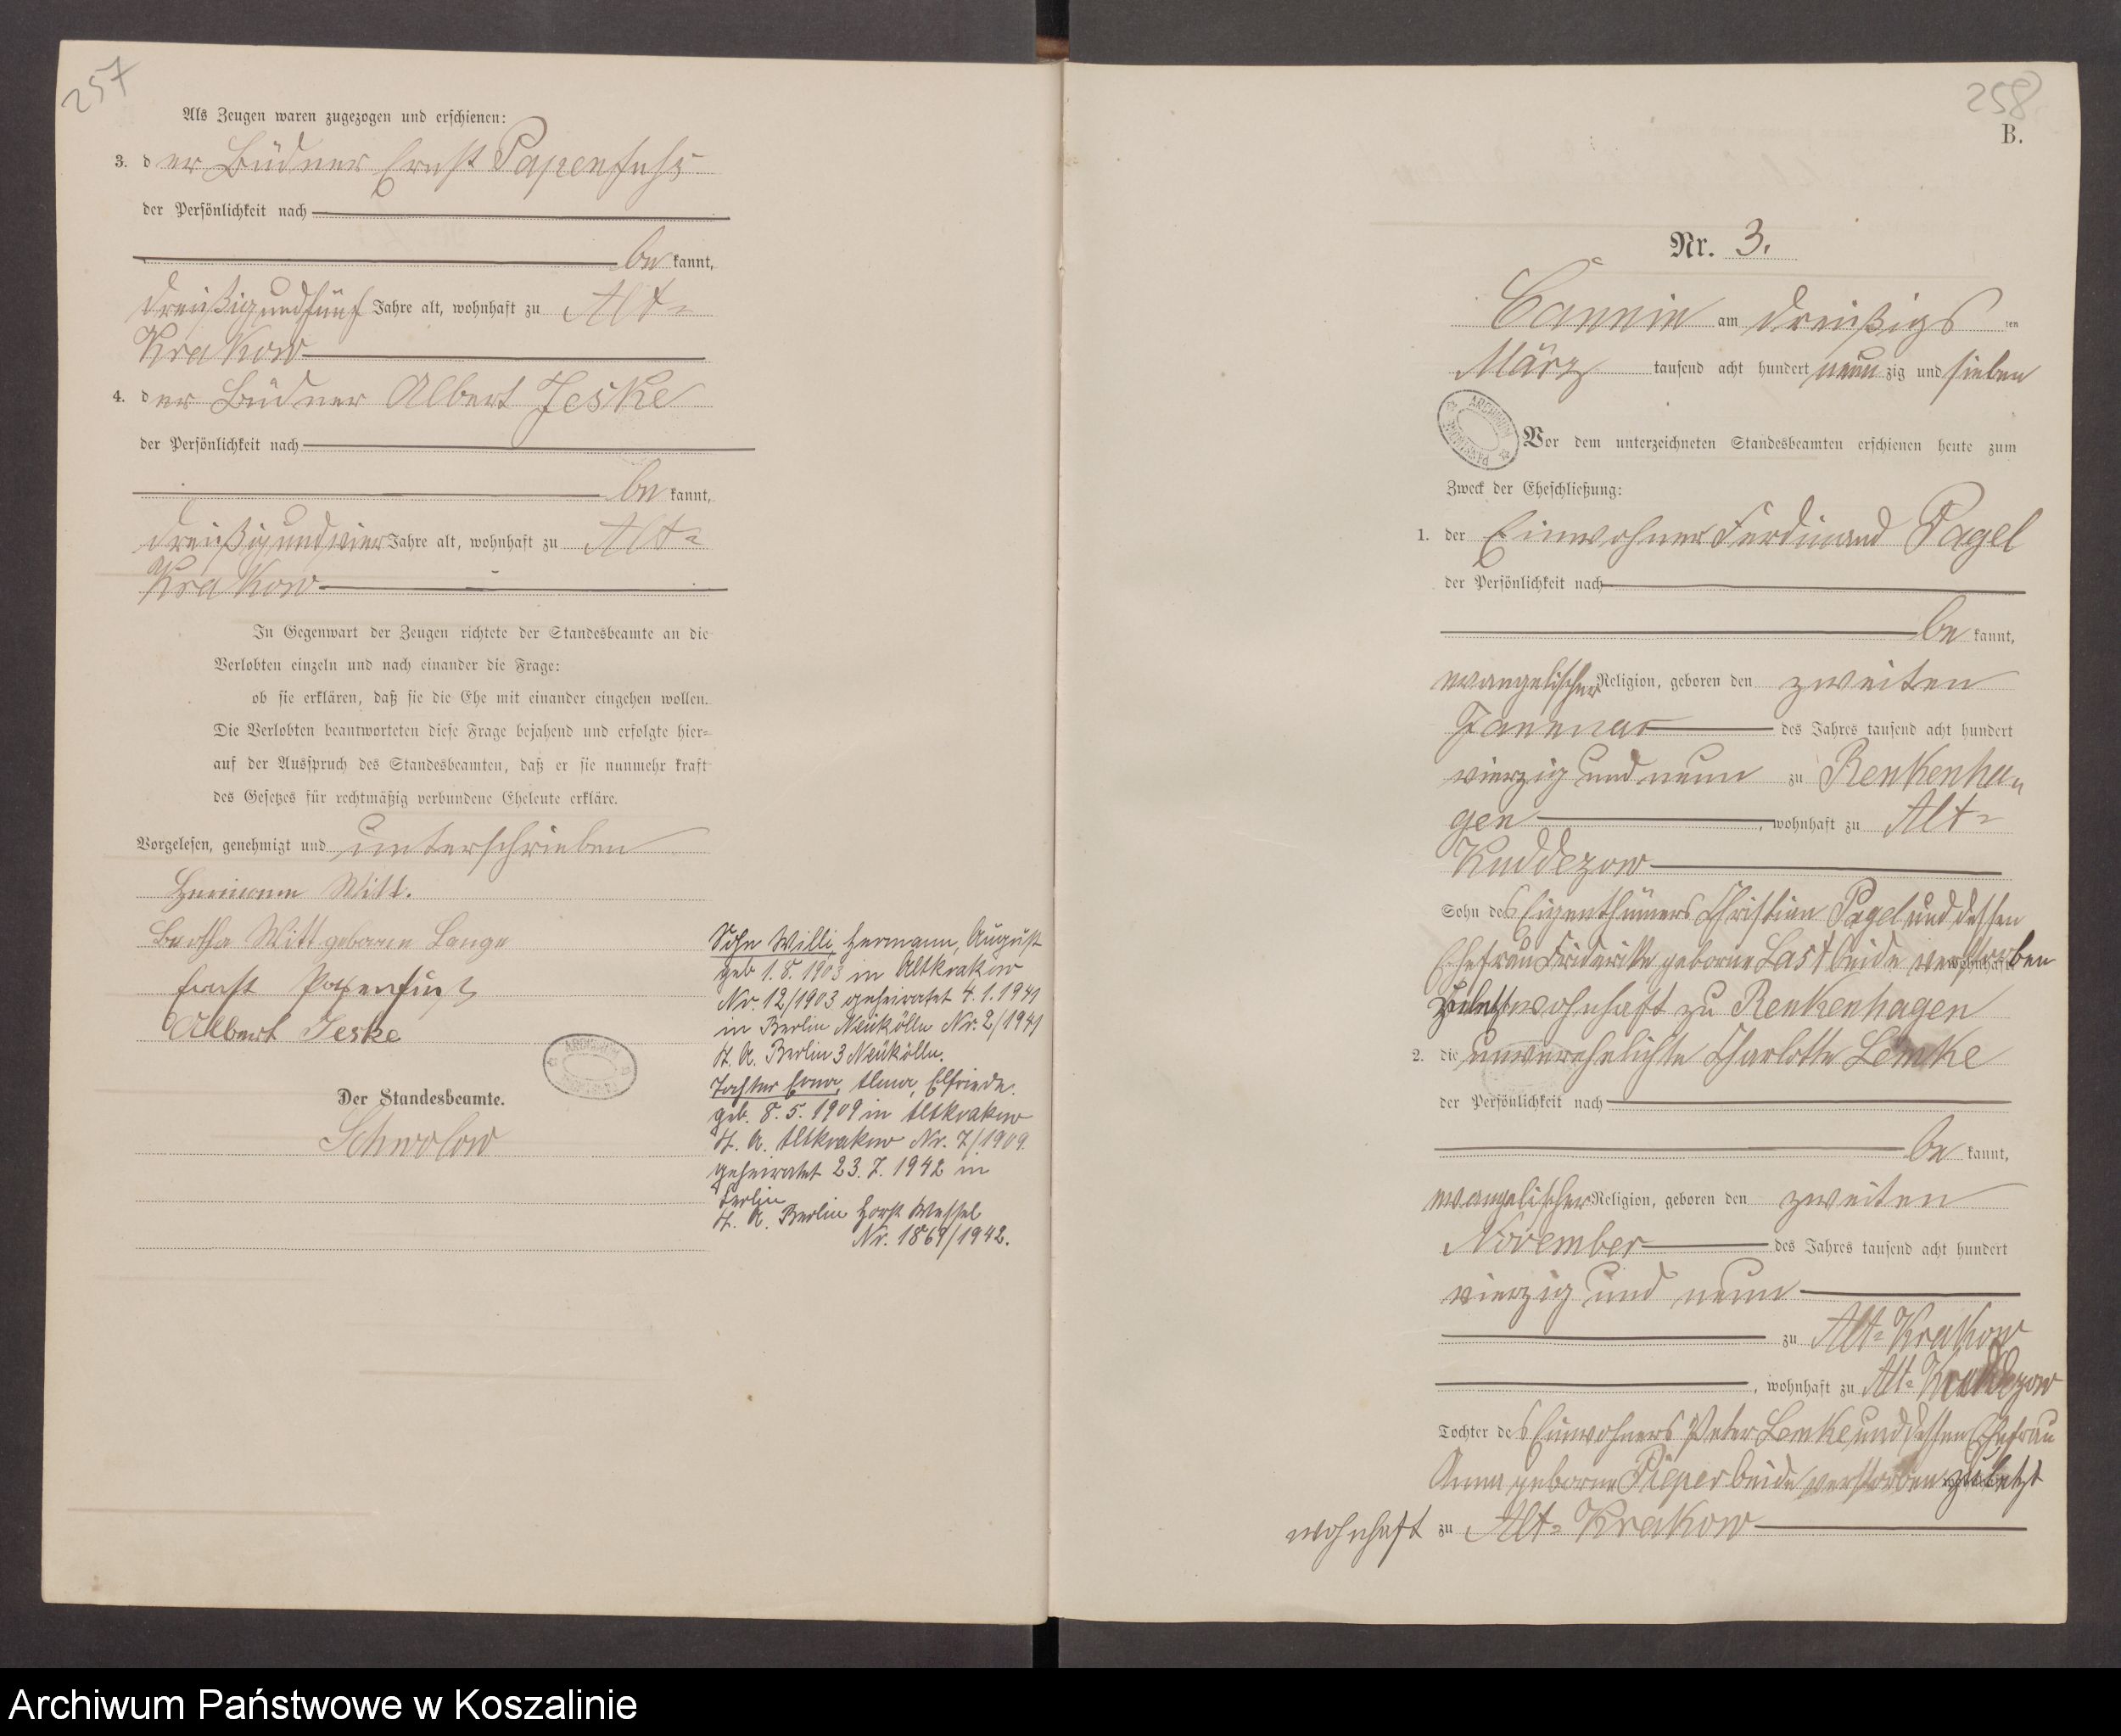 257
Als Zeugen waren zugezogen und erschienen:
3. der Büdner Ernst Papenfuß
der Persönlichkeit nach
bekannt,
dreißigundfünf Jahre alt, wohnhaft zu Alt-
Krakow
4. der Büdner Albert Jeske
der Persönlichkeit nach
bekannt,
dreißigundvier Jahre alt, wohnhaft zu Alt-
Krakow
In Gegenwart der Zeugen richtete der Standesbeamte an die
Verlobten einzeln und nach einander die Frage:
ob sie erklären, daß sie die Ehe mit einander eingehen wollen.
Die Verlobten beantworteten diese Frage bejahend und erfolgte hier-
auf der Ausspruch des Standesbeamten, daß er sie nunmehr kraft
des Gesetzes für rechtmäßig verbundene Eheleute erkläre.
Vorgelesen, genehmigt und unterschrieben
Hermann Witt.
Bertha Witt geborene Lange
Ernst Papenfuß
Albert Jeske
Der Standesbeamte.
Schwolow
Sohn Willi, Hermann, August
geb 1.8.1903 in Altkrakow
Nr. 12/1903 geheiratet 4.1.1941
in Berlin Neukölln Nr. 2/1941
St. A. Berlin 3 Neukölln.
Tochter Erna, Alma, Elfriede.
geb. 8.5.1909 in Altkrakow
St. A. Altkrakow Nr. 7/1909.
geheiratet 23.7.1942 in
Berlin
St. A. Berlin Horst Wessel
Nr. 1869/1942.
258
B.
Nr. 3.
Cannin am dreißigsten
März tausend acht hundert neunzig und sieben
ARCHIWUM
Vor dem unterzeichneten Standesbeamten erschienen heute zum
Zweck der Eheschließung:
1. der Einwohner Ferdinand Pagel
der Persönlichkeit nach
bekannt,
evangelischer Religion, geboren den zweiten
Januar des Jahres tausend acht hundert
vierzig und neun zu Renkenha-
gen, wohnhaft zu Alt-
Kuddezow
Sohn des Eigenthümers Christian Pagel und dessen
Ehefrau Friderike geborne Last beide verstorben
zuletzt wohnhaft zu Renkenhagen
2. die unverehelichte Charlotte Lemke
der Persönlichkeit nach
bekannt,
evangelischer Religion, geboren den zweiten
November des Jahres tausend acht hundert
vierzig und neun
zu Alt-Krakow
, wohnhaft zu Alt-Kuddezow
Tochter des Einwohners Peter Lemke und dessen Ehefrau
Anna geborne Pieper beide verstorben zuletzt
wohnhaft zu Alt-Krakow
Archiwum Państwowe w Koszalinie